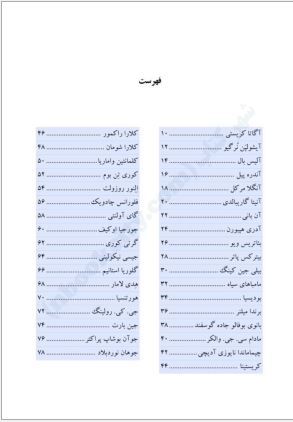 فهرست
آگاتا کریستی ........................ ۱۰
آیشولپن تُرگیو ........................ ۱۲
آلیس بال ........................ ۱۴
آندره پیل ........................ ۱۶
آنگلا مرکل ........................ ۱۸
آنیتا گاریبالدی ........................ ۲۰
آن بانی ........................ ۲۲
آدری هیپورن ........................ ۲۴
بئاتریس ویو ........................ ۲۶
بیترکس پاتر ........................ ۲۸
بیلی جین کینگ ........................ ۳۰
مامباهای سیاه ........................ ۳۲
بودیسیا ........................ ۳۴
برندا میلنر ........................ ۳۶
بانوی بوفالو جاده گوسفند ........................ ۳۸
مادام سی. جی. والکر ........................ ۴۰
چیماماندا نایوزی آدیچی ........................ ۴۲
کریستینا ........................ ۴۴
کلارا راکمور ........................ ۴۶
کلارا شومان ........................ ۴۸
کلمانتین واماریا ........................ ۵۰
کوری تِن بوم ........................ ۵۲
اِلنور روزولت ........................ ۵۴
فلورانس چادویک ........................ ۵۶
گای آولنتی ........................ ۵۸
جورجیا اوکیف ........................ ۶۰
گرتی کوری ........................ ۶۲
جیسی نیکولینی ........................ ۶۴
گلوریا استاینم ........................ ۶۶
هِدی لامار ........................ ۶۸
هورتنسیا ........................ ۷۰
جی. کی. رولینگ ........................ ۷۲
جین بارت ........................ ۷۴
جوآن بوشاپ پراکتر ........................ ۷۶
جوهان نوردبلاد ........................ ۷۸